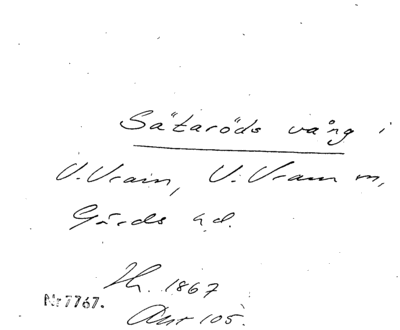 Sätaröds vång i
V. Vram, V. Vram sn,
Gärds hd.
Hr. 1867
Nr 7767.
Ant 105.